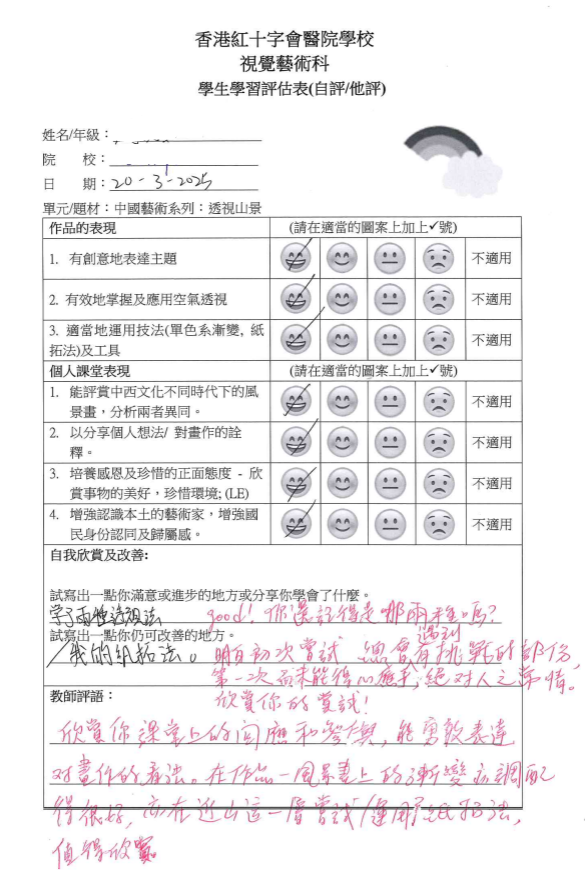 香港紅十字會醫院學校
視覺藝術科
學生學習評估表(自評/他評)
姓名/年級：
院 校：
日 期：20-3-2025
單元/題材：中國藝術系列：透視山景
作品的表現 (請在適當的圖案上加上✓號)
1. 有創意地表達主題 不適用
2. 有效地掌握及應用空氣透視 不適用
3. 適當地運用技法(單色系漸變, 紙
拓法)及工具 不適用
個人課堂表現 (請在適當的圖案上加上✓號)
1. 能評賞中西文化不同時代下的風
景畫，分析兩者異同。 不適用
2. 以分享個人想法/ 對畫作的詮
釋。 不適用
3. 培養感恩及珍惜的正面態度 - 欣
賞事物的美好，珍惜環境; (LE) 不適用
4. 增強認識本土的藝術家，增強國
民身份認同及歸屬感。 不適用
自我欣賞及改善:
試寫出一點你滿意或進步的地方或分享你學會了什麼。
学了兩種透視法 good! 你還記得是哪兩種嗎?
試寫出一點你仍可改善的地方。
我的紙拓法。 初次嘗試 總會遇到有挑戰的部份,
第一次而未能得心應手,絕对人之常情。
欣賞你的嘗試!
教師評語：
欣賞你課堂上的回應和參與, 能勇敢表達
对畫作的看法。在作品—風景畫上的漸變 調配
得很好, 亦在近山這一層嘗試/運用了紙拓法,
值得欣賞